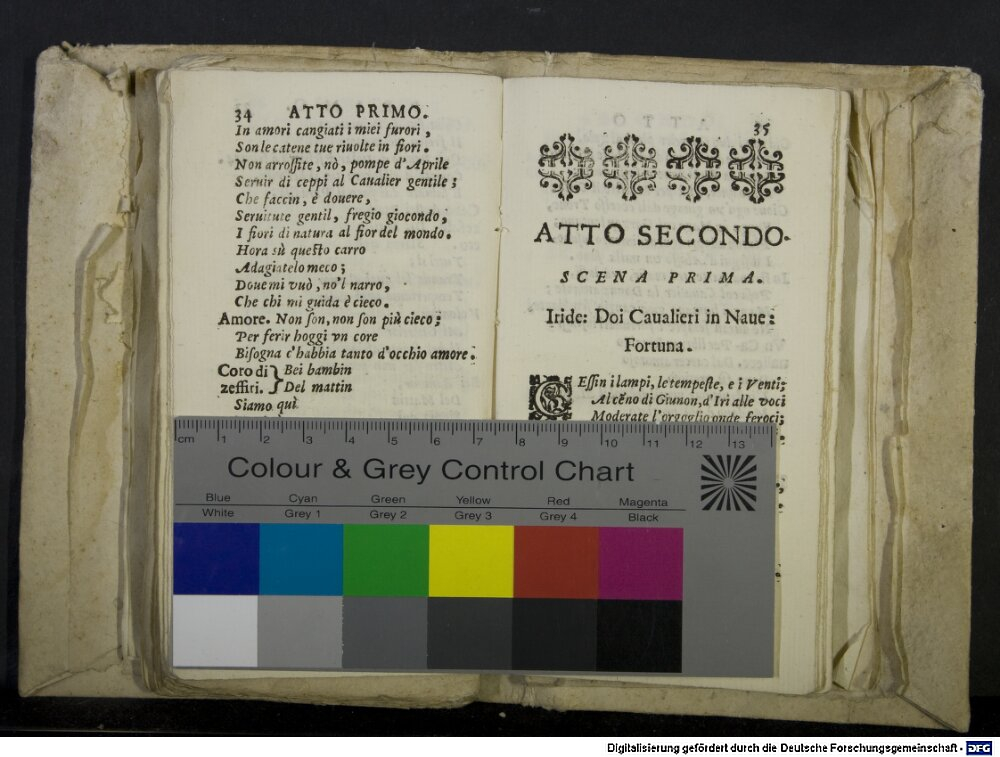 34 ATTO PRIMO.
In amori cangiati i miei furori,
Son le catene tue riuolte in fiori.
Non arrossite, nò, pompe d'Aprile
Seruir di ceppi al Caualier gentile;
Che faccin, è douere,
Seruitute gentil, fregio giocondo,
I fiori di natura al fior del mondo.
Hora sù questo carro
Adagiatelo meco;
Doue mi vuò, no'l narro,
Che chi mi guida è cieco.
Amore. Non son, non son più cieco;
Per ferir hoggi vn core
Bisogna c'habbia tanto d'occhio amore.
Coro di } Bei bambin
zeffiri. } Del mattin
Siamo quì
35
ATTO SECONDO.
SCENA PRIMA.
Iride: Doi Caualieri in Naue:
Fortuna.
CEssin i lampi, le tempeste, e i Venti;
Al cẽno di Giunon, d'Iri alle voci
Moderate l'orgoglio onde feroci;
cm 1 2 3 4 5 6 7 8 9 10 11 12 13
Colour & Grey Control Chart
Blue Cyan Green Yellow Red Magenta
White Grey 1 Grey 2 Grey 3 Grey 4 Black
Digitalisierung gefördert durch die Deutsche Forschungsgemeinschaft - DFG